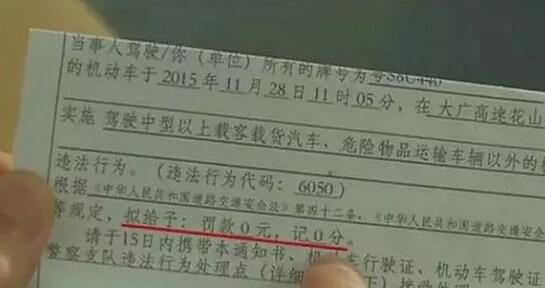 当事人驾驶/你（单位）所有的牌号为
的机动车于 2015 年 11 月 28 日 11 时 05 分，在 大广高速花山
实施 驾驶中型以上载客载货汽车、危险物品运输车辆以外的机
违法行为。（违法行为代码：6050）
根据 《中华人民共和国道路交通安全法》第四十二条、《中华人民共和国道路交通安全
等规定，拟给予：罚款0元，记0分。
请于15日内携带本通知书、机动车行驶证、机动车驾驶证
警察支队违法行为处理点（详细 下）接受处理